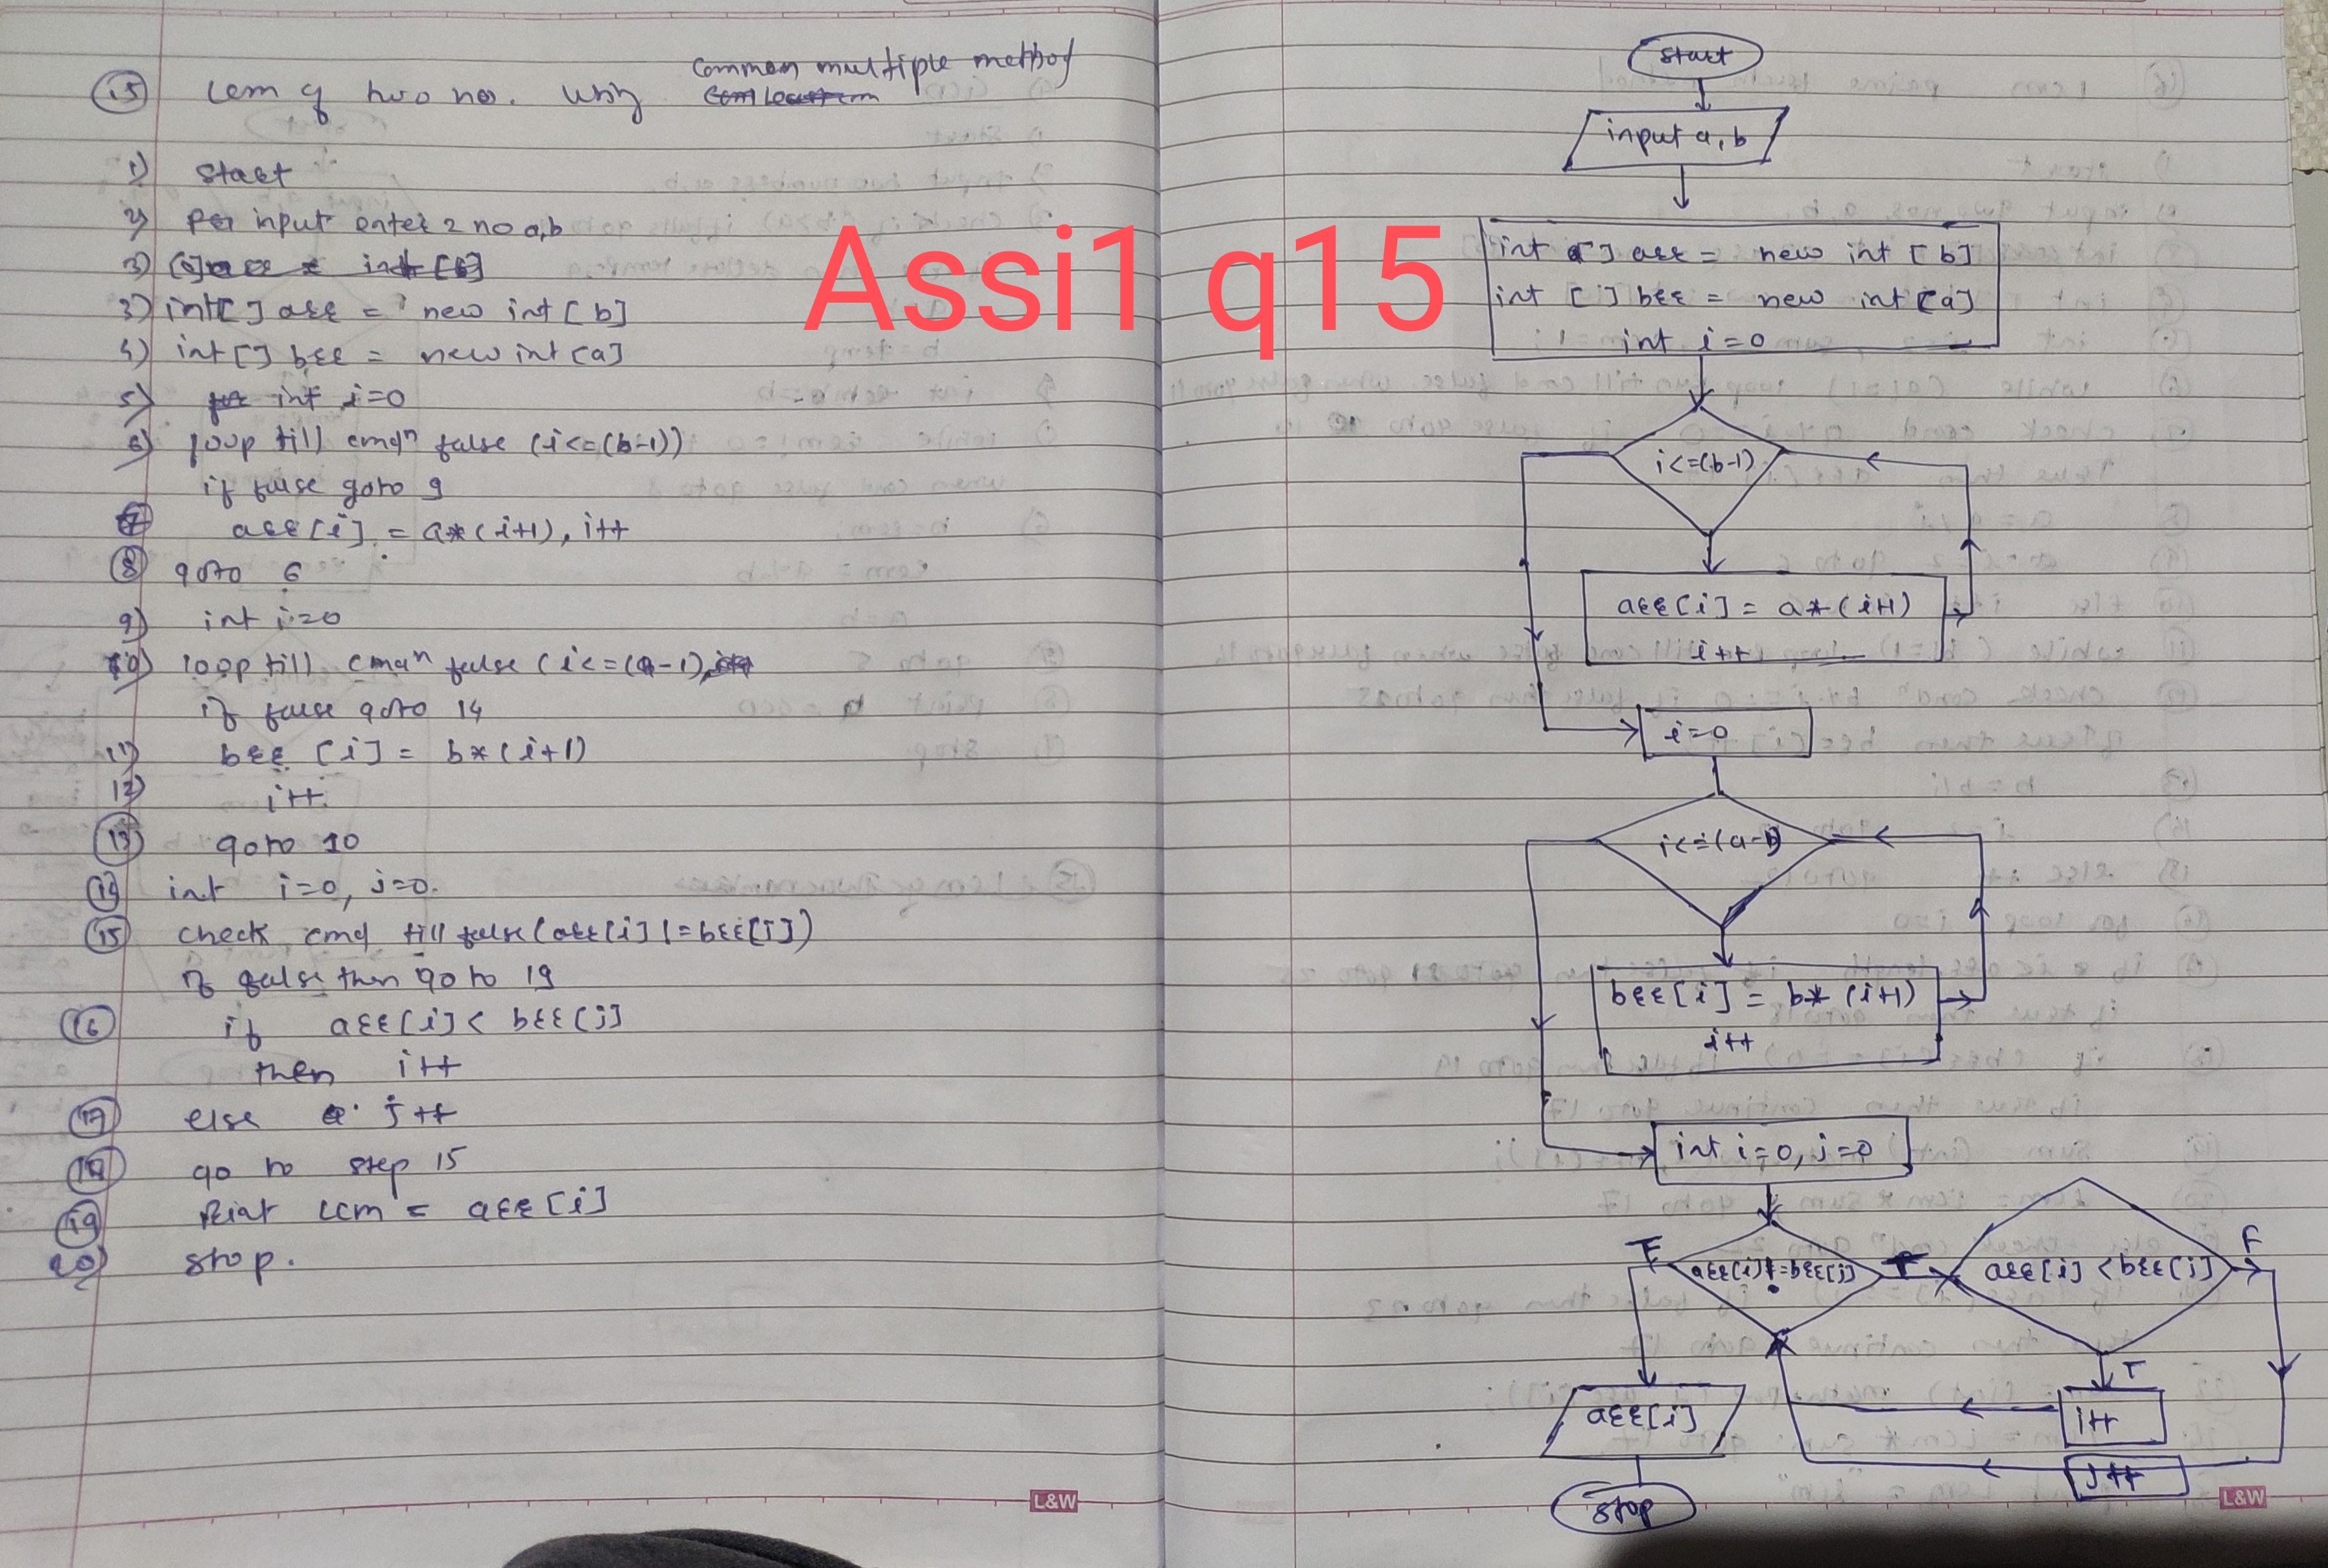 15) Lcm of two no. using common multiple method
1) Start
2) Per input enter 2 no a,b
3) int[] arr = new int [b]
4) int[] brr = new int [a]
5) int i=0
6) loop till cmdn false (i<=(b-1))
if false goto 9
7 arr[i] = a*(i+1), i++
8) goto 6
9) int i=0
10) loop till cmdn false (i<=(a-1),
if false goto 14
11) brr [i] = b*(i+1)
12) i++
13) goto 10
14) int i=0, j=0.
15) check cmd till false (arr[i] != brr[j])
if false then go to 19
16) if arr[i] < brr[j]
then i++
17) else j++
18) go to step 15
19) Print Lcm = arr[i]
20) stop.
L&W
Assi1 q15
Start
input a, b
int [] arr = new int [b]
int [] brr = new int [a]
int i=0
i<=(b-1)
arr[i] = a*(i+1)
i++
i=0
i<=(a-1)
brr[i] = b* (i+1)
i++
int i=0, j=0
F
arr[i] != brr[j]
T
arr[i] < brr[j]
F
T
i++
j++
arr[i]
stop
L&W